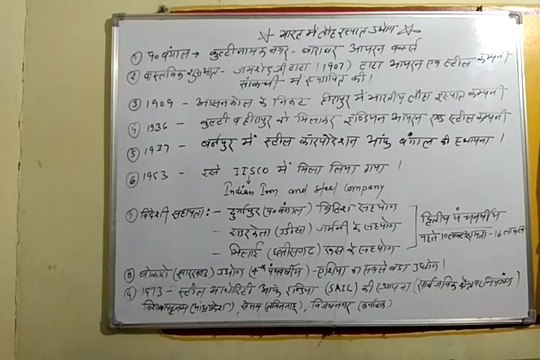 भारत में लौह इस्पात उद्योग
① प० बंगाल → कुल्टी नामक नगर - बाराकर आयरन वर्क्स
② वास्तविक शुरुआत - जमशेद जी टाटा (1907) टाटा आयरन एण्ड स्टील कम्पनी
साकची में स्थापित की।
③ 1909 - आसनसोल के निकट हीरापुर में भारतीय लौहा इस्पात कम्पनी
④ 1936 - कुल्टी व हीरापुर को मिलाकर इण्डियन आयरन एण्ड स्टील कम्पनी
⑤ 1937 - बर्नपुर में स्टील कॉरपोरेशन ऑफ बंगाल की स्थापना।
⑥ 1953 - इसे IISCO में मिला लिया गया।
Indian Iron and Steel Company
⑦ विदेशी सहायता :- दुर्गापुर (प० बंगाल) ब्रिटिश सहयोग
- राउरकेला (उडीसा) जर्मनी के सहयोग
- भिलाई (छत्तीसगढ) रूस के सहयोग
द्वितीय पंचवर्षीय
⑧ बोकारो (झारखण्ड) उद्योग (4th पंचवर्षीय) - एशिया का सबसे बडा उद्योग।
⑨ 1973 - स्टील ऑथोरिटी ऑफ इण्डिया (SAIL) की स्थापना (सार्वजनिक क्षेत्र पर नियंत्रण)
विशाखापट्टनम (आंध्रप्रदेश), सेलम (तमिलनाडु), विजयनगर (कर्नाटक)